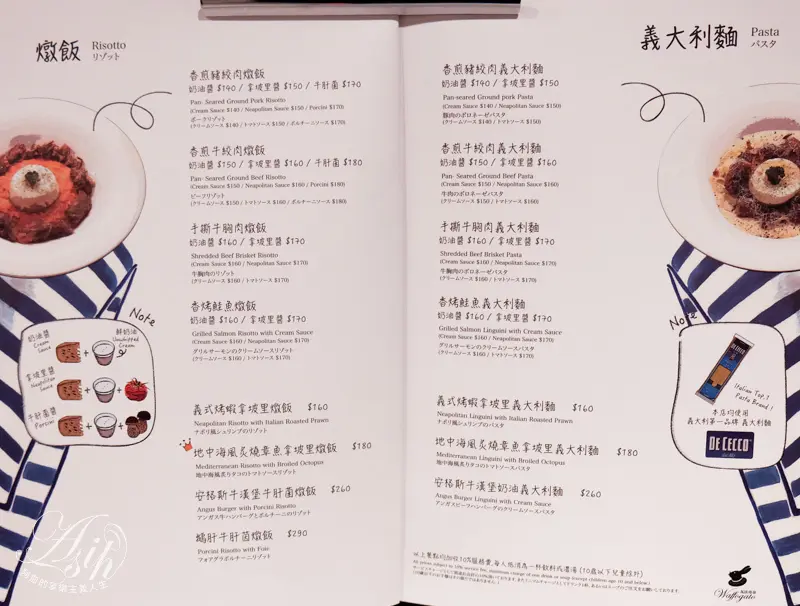 燉飯
Risotto
リゾット
香煎豬絞肉燉飯
奶油醬 $140 / 拿坡里醬 $150 / 牛肝菌 $170
Pan- Seared Ground Pork Risotto
(Cream Sauce $140 / Neapolitan Sauce $150 / Porcini $170)
ポークリゾット
(クリームソース $140 / トマトソース $150 / ポルチーニソース $170)
香煎牛絞肉燉飯
奶油醬 $150 / 拿坡里醬 $160 / 牛肝菌 $180
Pan- Seared Ground Beef Risotto
(Cream Sauce $150 / Neapolitan Sauce $160 / Porcini $180)
ビーフリゾット
(クリームソース $150 / トマトソース $160 / ポルチーニソース $180)
手撕牛胸肉燉飯
奶油醬 $160 / 拿坡里醬 $170
Shredded Beef Brisket Risotto
(Cream Sauce $160 / Neapolitan Sauce $170)
牛胸肉のリゾット
(クリームソース $160 / トマトソース $170)
香烤鮭魚燉飯
奶油醬 $160 / 拿坡里醬 $170
Grilled Salmon Risotto with Cream Sauce
(Cream Sauce $160 / Neapolitan Sauce $170)
グリルサーモンのクリームソースリゾット
(クリームソース $160 / トマトソース $170)
義式烤蝦拿坡里燉飯 $160
Neapolitan Risotto with Italian Roasted Prawn
ナポリ風シュリンプのリゾット
地中海風炙燒章魚拿坡里燉飯 $180
Mediterranean Risotto with Broiled Octopus
地中海風炙りタコのトマトソースリゾット
安格斯牛漢堡牛肝菌燉飯 $260
Angus Burger with Porcini Risotto
アンガス牛ハンバーグとポルチーニのリゾット
鴨肝牛肝菌燉飯 $290
Porcini Risotto with Foie
フォアグラポルチーニリゾット
Note
奶油醬
Cream
Sauce
鮮奶油
Unwhipped
Cream
拿坡里醬
Neapolitan
Sauce
牛肝菌醬
Porcini
Asih
義大利麵
Pasta
パスタ
香煎豬絞肉義大利麵
奶油醬 $140 / 拿坡里醬 $150
Pan-seared Ground pork Pasta
(Cream Sauce $140 / Neapolitan Sauce $150)
豚肉のポロネーゼパスタ
(クリームソース $140 / トマトソース $150)
香煎牛絞肉義大利麵
奶油醬 $150 / 拿坡里醬 $160
Pan-seared Ground Beef Pasta
(Cream Sauce $150 / Neapolitan Sauce $160)
牛肉のポロネーゼパスタ
(クリームソース $150 / トマトソース $160)
手撕牛胸肉義大利麵
奶油醬 $160 / 拿坡里醬 $170
Shredded Beef Brisket Pasta
(Cream Sauce $160 / Neapolitan Sauce $170)
牛胸肉のポロネーゼパスタ
(クリームソース $160 / トマトソース $170)
香烤鮭魚義大利麵
奶油醬 $160 / 拿坡里醬 $170
Grilled Salmon Linguini with Cream Sauce
(Cream Sauce $160 / Neapolitan Sauce $170)
グリルサーモンのクリームソースパスタ
(クリームソース $160 / トマトソース $170)
義式烤蝦拿坡里義大利麵 $160
Neapolitan Linguini with Italian Roasted Prawn
ナポリ風シュリンプのパスタ
地中海風炙燒章魚拿坡里義大利麵 $180
Mediterranean Linguini with Broiled Octopus
地中海風炙りタコのトマトソースパスタ
安格斯牛漢堡奶油義大利麵 $260
Angus Burger Linguini with Cream Sauce
アンガスビーフハンバーグのクリームソースパスタ
Note
Italian Top.1
Pasta Brand !
本店均使用
義大利第一品牌 義大利麵
DE CECCO
以上餐點均加收10%服務費,每人低消為一杯飲料或濃湯 (10歲以下兒童除外)
Waffogato